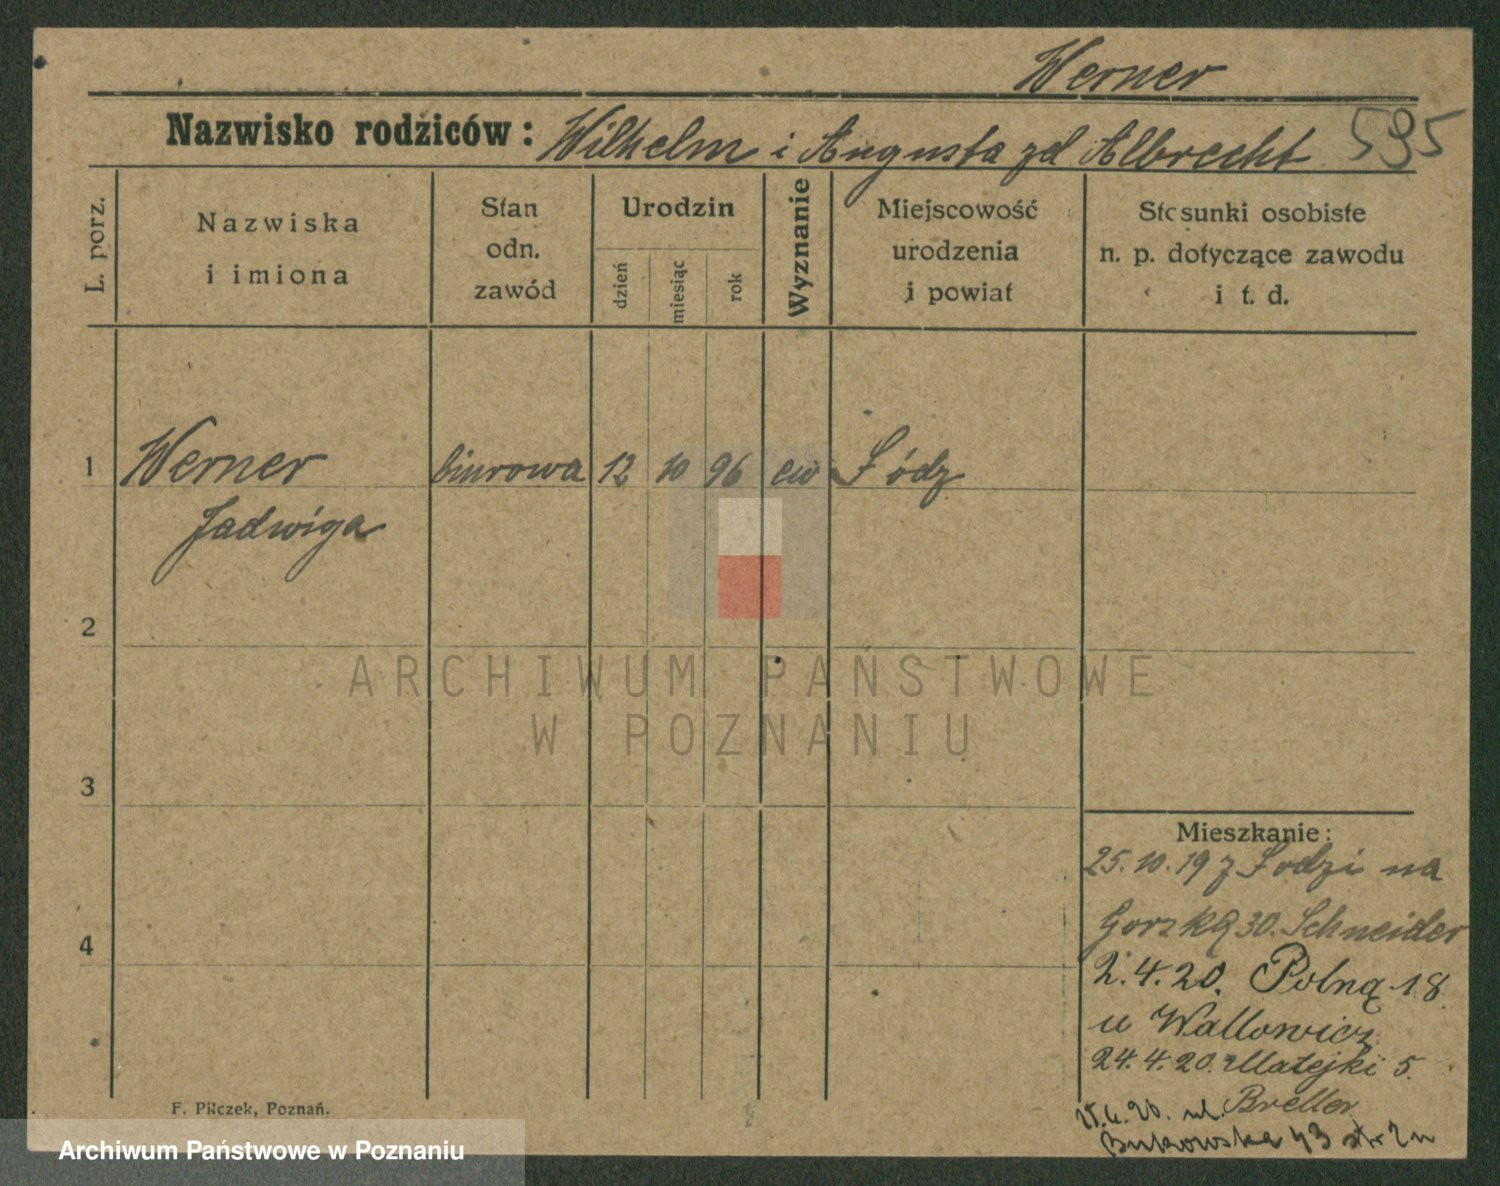 Werner
Nazwisko rodziców: Wilhelm i Augusta zd Albrecht 595
L. porz.
Nazwiska
i imiona
Stan
odn.
zawód
Urodzin
dzień
miesiąc
rok
Wyznanie
Miejscowość
urodzenia
i powiat
Stosunki osobiste
n. p. dotyczące zawodu
i t. d.
1 Werner biurowa 12 10 96 ew Łódz
Jadwiga
2
ARCHIWUM PAŃSTWOWE
W POZNANIU
3
Mieszkanie:
25.10.19 z Łodzi na
Gorską 30. Schneider
4
2.4.20. Polną 18
u Wallowicz
24.4.20. Matejki 5.
Breller
ul.
Bukowska 43
F. Pilczek, Poznań.
Archiwum Państwowe w Poznaniu